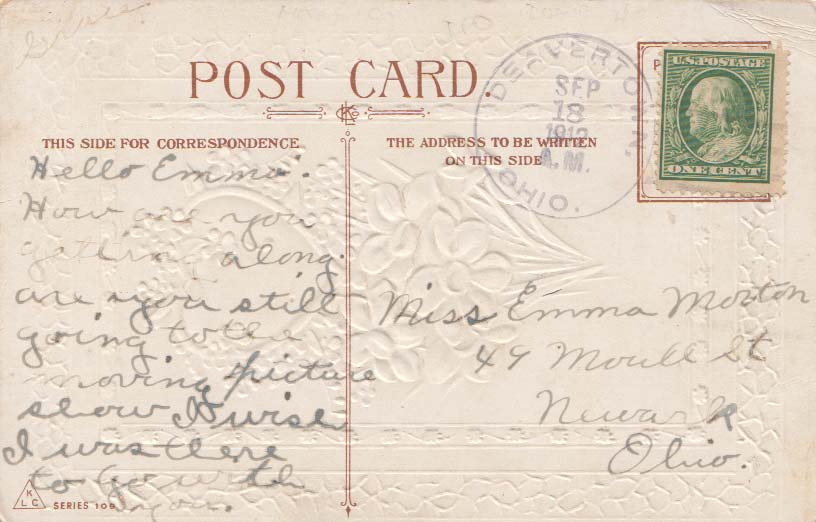 POST CARD.
KLCo
THIS SIDE FOR CORRESPONDENCE
THE ADDRESS TO BE WRITTEN
ON THIS SIDE
DEAVERTOWN,
OHIO.
SEP
18
1912
A.M.
U.S. POSTAGE
ONE CENT
Hello Emma.
How are you
getting along.
are you still
going to the
moving picture
show I wish
I was there
to go with
you.
Miss Emma Morton
49 Moull St
Newark
Ohio.
K
L C
SERIES 109